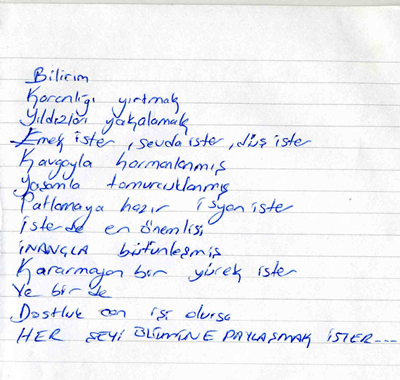 Bilirim
Karanlığı yırtmak
Yıldızları yakalamak
Emek ister, sevda ister, düş ister
Kavgayla harmanlanmış
Yaşamla tomurcuklanmış
Patlamaya hazır isyan ister
İster de en önemlisi
İNANÇLA bütünleşmiş
Kararmayan bir yürek ister
Ve bir de
Dostluk can işi olursa
HER ŞEYİ ÖLÜMÜNE PAYLAŞMAK İSTER...